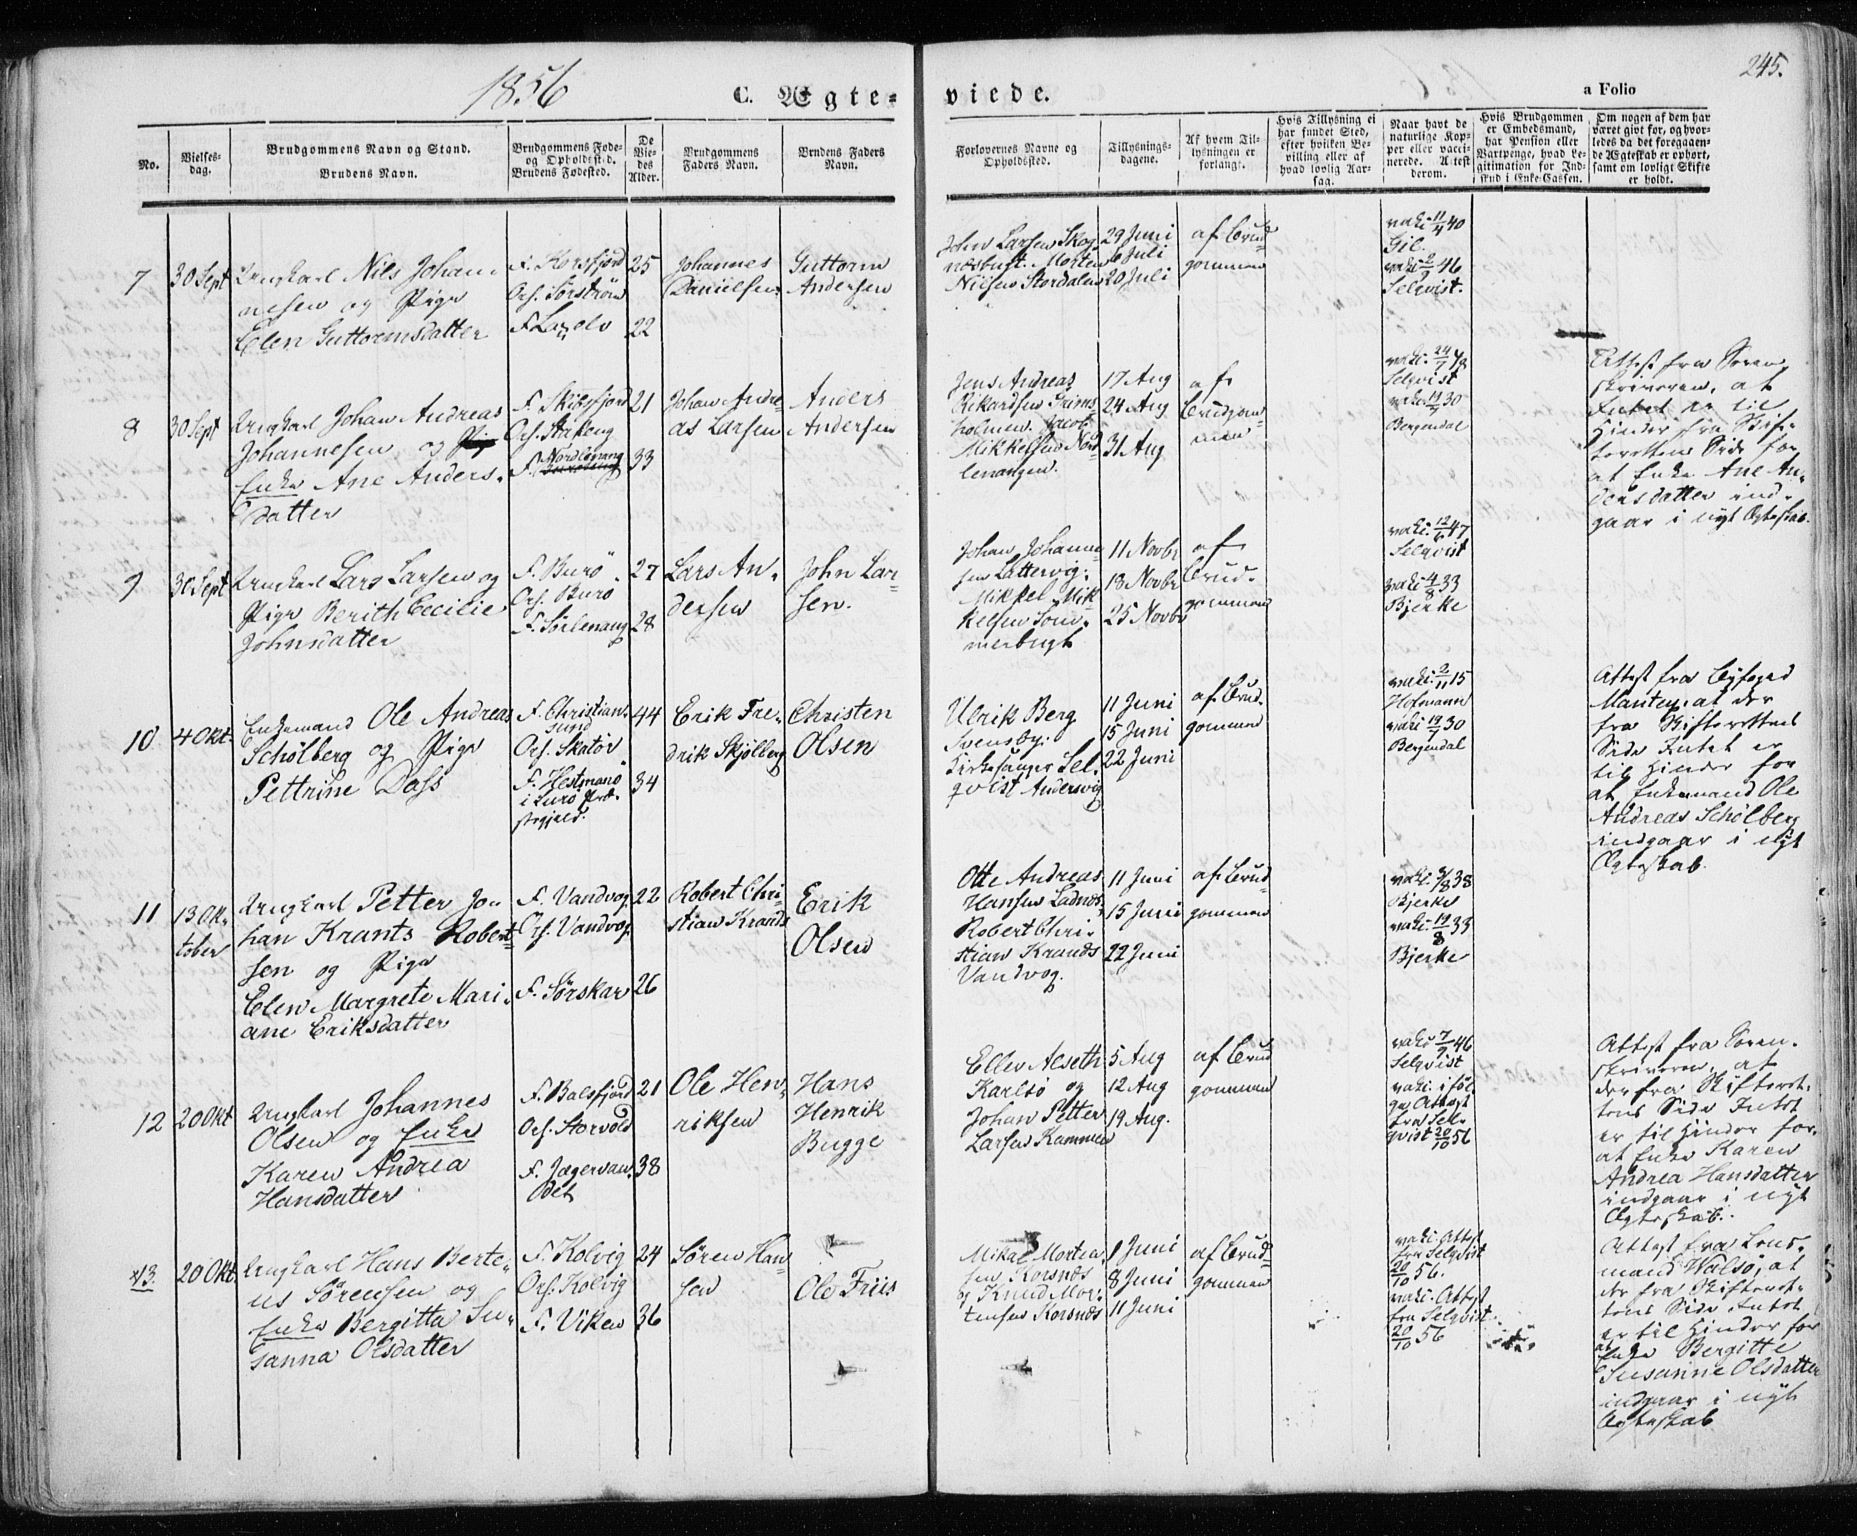 1856
C. Ægte-
viede.
245.
a Folio
No.
Vielses-
dag.
Brudgommens Navn og Stand.
Brudens Navn.
Brudgommens Føde-
og Opholdssted.
Brudens Fødested.
De
Vie-
des
Alder.
Brudgommens
Faders Navn.
Brudens Faders
Navn.
Forlovernes Navne og
Opholdssted.
Tillysnings-
dagene.
Af hvem Til-
lysningen er
forlangt.
Hvis Tillysning ei
har fundet Sted,
efter hvilken Be-
villing eller af
hvad lovlig Aar-
sag.
Naar havt de
naturlige Kop-
per eller vacci-
nerede. Attest
derom.
Hvis Brudgommen
er Embedsmand,
har Pension eller
Vartpenge, hvad Le-
gitimation for Ind-
skud i Enke-Cassen.
Om nogen af dem har
været givt før, og hvor-
ledes da det foregaaen-
de Ægteskab er ophørt,
samt om lovligt Skifte
er holdt.
7
30 Sept
Ungkarl Nils Johan-
nesen og Pige
Elen Guttormsdatter
F. Korsfjord
Oph. Sørstrøm
F.
25
22
Johannes
Danielsen
Guttorm
Andersen
John Larsen Skog-
næsbugt. Morten
Nilsen Stordalen
29 Juni
6 Juli
20 Juli
af Brud-
gommen
vaki. 11/4 40
Gil.
vaki 2/7 46
Selqvist.
8
30 Sept
Ungkarl Johan Andreas
Johannesen og
Enke Ane Anders-
datter
F. Skibsfjord
Oph. Stakeng
F. Nordlenang
21
33
Johan Andre-
as Larsen
Anders
Andersen
Jens Andreas
Rikardsen Grims-
holmen. Jacob
Mikkelsen Nord-
lenangen.
17 Aug
24 Aug
31 Aug
af
Brudgom-
men
vaki. 24/7 48
Selqvist
vaki 19/7 30
Bergendal
Attest fra Soren-
skriveren, at
Intet er til
Hinder fra Skif-
terettens Side for
at Enke Ane An-
dersdatter ind-
gaar i nyt Ægteskab.
9
30 Sept
Ungkarl Lars Larsen og
Pige Berith Cecilie
Johnsdatter
F. Burø
Oph. Burø
F. Sørlenang
27
28
Lars An-
dersen
John Lar-
sen.
Johan Johanne-
sen Lattervig.
Mikkel Mik-
kelsen Som-
merbugt
11 Novbr
18 Novbr
25 Novbr
af
Brud-
gommen
vaki 12/6 47
Selqvist
vaki 4/8 33
Bjerke
10
4 Okt.
Enkemand Ole Andreas
Schølberg og Pige
Pettrine Dass
F. Christian-
sund
Oph. Skatør
F. Hestmanø
i Lurø Præ-
stegjeld.
44
34
Erik Fre-
drik Skjølberg
Christen
Olsen
Ulrik Berg
Svensby.
Kirkesanger Sel-
qvist Andersvig
11 Juni
15 Juni
22 Juni
af Brud-
gommen
vaki. 2/11 15
Hofmann
vaki 19/7 30
Bergendal
Attest fra Byfoged
Mantey, at der
fra Skifterettens
Side Intet er
til Hinder for
at Enkemand Ole
Andreas Schølberg
indgaar i nyt
Ægteskab.
11
13 Ok-
tober
Ungkarl Petter Jo-
han Krants Robert-
sen og Pige
Elen Margrete Mari-
ane Eriksdatter
F. Vandvog
Oph. Vandvog.
F. Sørskar
22
26
Robert Chri-
stian Krants
Erik
Olsen
Otte Andreas
Hansen Ladnes.
Robert Chri-
stian Krants
Vandvog.
11 Juni
15 Juni
22 Juni
af Brud-
gommen
vaki. 3/8 38
Bjerke
vaki. 19/8 33
Bjerke
12
20 Okt
Ungkarl Johannes
Olsen og Enke
Karen Andrea
Hansdatter
F. Balsfjord
Oph. Storvold
F. Jægervan-
det
21
38
Ole Hen-
riksen
Hans
Henrik
Bugge
Eller Alseth
Karlsø og
Johan Petter
Larsen Kammen
5 Aug
12 Aug
19 Aug.
af Brud-
gommen
vaki 7/9 46
Selqvist
vaki ifølge
Attest
fra Sel-
qvist 20/10 56
Attest fra Soren-
skriveren, at
der fra Skifteret-
tens Side Intet
er til Hinder for
at Enke Karen
Andrea Hansdatter
indgaar i nyt
Ægteskab.
13.
20 Okt.
Ungkarl Hans Berte-
us Sørensen og
Enke Bergitta Su-
sanna Olsdatter
F. Kolvig
Oph. Kolvig
F. Viken
24
36
Søren Han-
sen
Ole Friis
Mikal Morten-
sen Korsnes
og Knud Mor-
tensen Korsnes
1 Juni
8 Juni
11 Juni
af Brud-
gommen
vaki. Attest
fra Selqvist
20/10 56.
vaki. Attest
fra Selqvist.
20/10 56
Attest fra Lens-
mand Walsø, at
der fra Skifteret-
tens Side Intet
er til Hinder for
at Enke Bergitte
Susanne Olsdatter
indgaar i nyt
Ægteskab